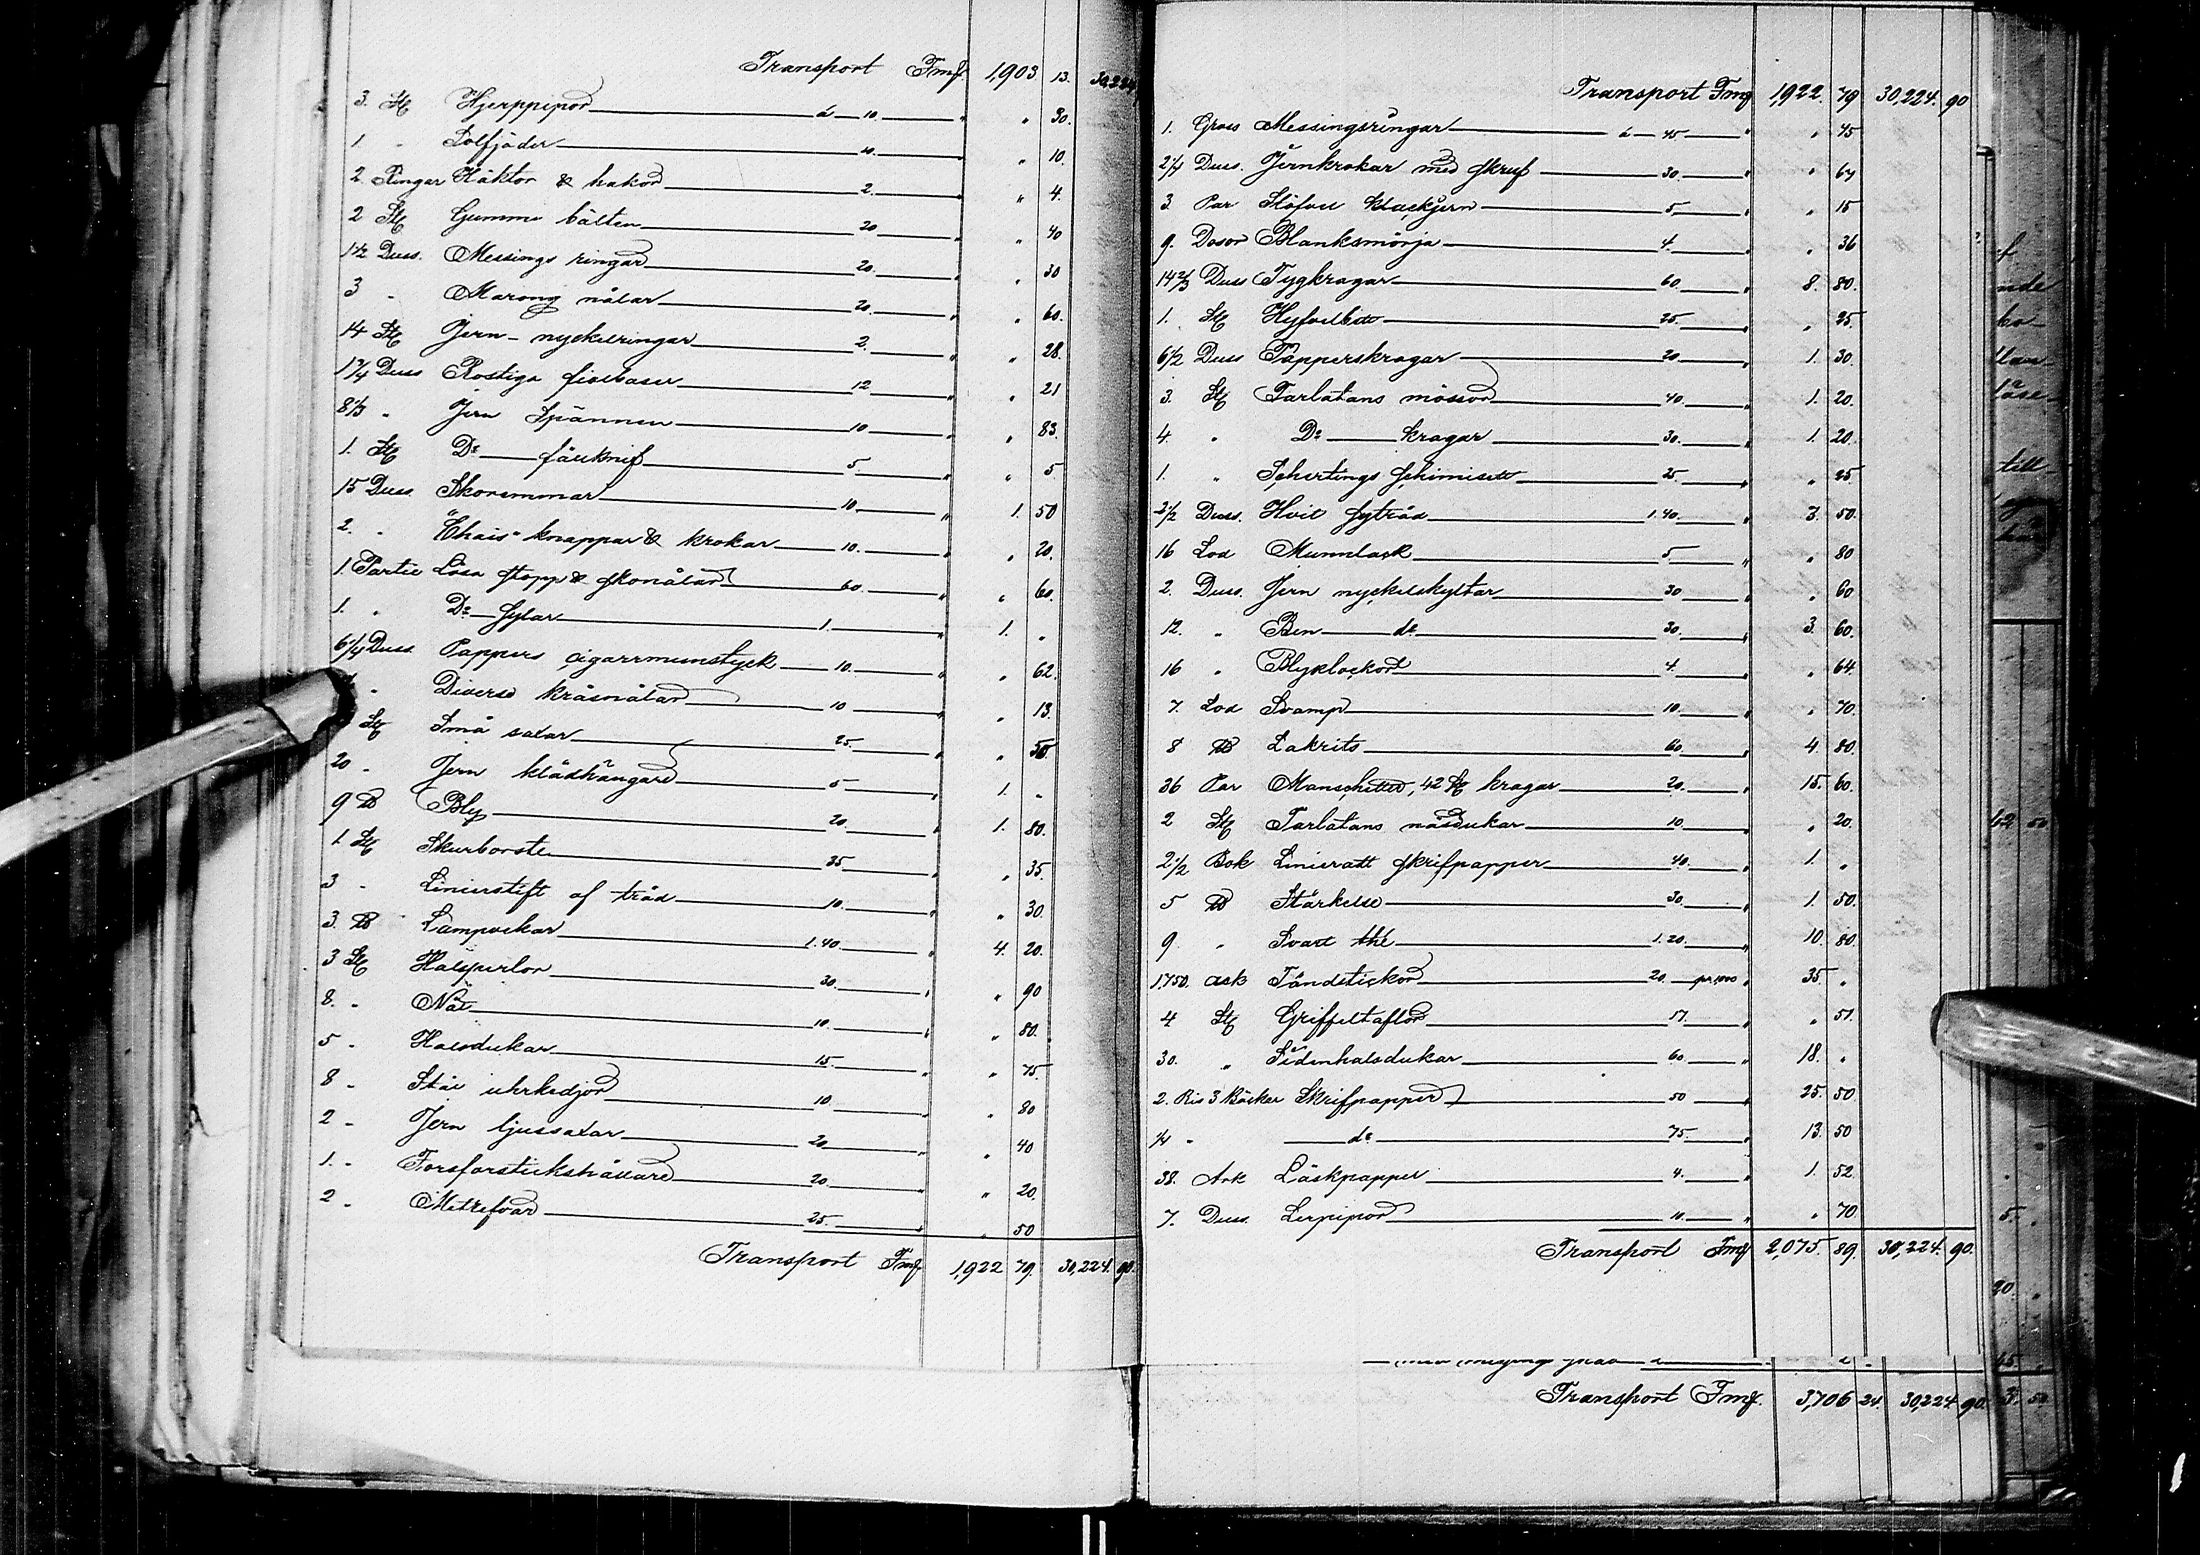 Transport Fmf. 1,903 13. 30,224
3. St Hjerppipor à 10. " " 30.
1. " Solfjäder 10. " " 10.
2 Ringar Häktor & hakor 2. " " 4.
2 St Gummi bälten 20 " " 40
1 1/2 Duss. Messings ringar 20. " " 30
3 " Marong nålar 20. " " 60.
14 St Jern-nyckelringar 2. " " 28.
1 3/4 Duss Rostiga 12 " " 21
8 1/3 " Jern Spännen 10 " " 83.
1. St Do fårknif 5 " " 5
15 Duss. Skoremmar 10. " 1. 50
2. " "Chais" knappar & krokar 10. " " 20.
1. Partie Lösa stopp & skonålar 60 " " 60.
1. " Do Sylar 1. " 1. "
6 1/4 Duss. Pappers cigarrmunstyck 10. " " 62.
" Diverse kråsnålar 10 " " 13.
St Små saxar 25 " " 50
20 " Jern klädhängare 5 " 1. "
9 ℔ Bly 20. " 1. 80.
1 St Skurborste 35 " " 35.
3 " Linierstift af träd 10. " " 30.
3. ℔ Lampvekar 1.40 " 4. 20.
3 St Halsperlor 30. " " 90
8. " Nät 10 " " 80.
5 " Halsdukar 15 " " 75.
8 " Stål uhrkedjor 10 " " 80
2 " Jern ljussaxar 20 " " 40
1. " Forsforstickshållare 20. " " 20.
2 " Metrefvar 25. " " 50
Transport Fmf 1,922 79. 30,224. 90.
Transport Fmf 1,922. 79 30,224. 90
1. Gross Messingsringar à 45 " " 45
2 1/4 Duss. Jernkrokar med skruf 30. " " 67
3. Par Stöfvel klackjern 5. " " 15
9. Dosor Blanksmörja 4. " " 36
14 2/3 Duss Tygkragar 60. " 8. 80.
1. St 25. " " 25.
6 1/2 Duss Papperskragar 20 " 1. 30.
3. St Tarlatans mössor 40. " 1. 20.
4. " Do kragar 30. " 1. 20.
1. " Schertings schimisett 25. " " 25
2 1/2 Duss. Hvit sytråd 1.40. " 3. 50.
16 Lod Munnlack 5 " " 80
2. Duss. Jern nyckelskyltar 30 " " 60
12. " Ben do 30. " 3. 60.
16 " Blyklockor 4. " " 64.
7. Lod Svamp 10. " " 70.
8 ℔ Lakrits 60. " 4. 80.
36 Par Manschetter, 42 St kragar 20. " 15. 60.
2 St Tarlatans näsdukar 10. " " 20.
2 1/2 Bok Linieratt skrifpapper 40. " 1. "
5 ℔ Stärkelse 30. " 1. 50.
9 " Svart thé 1.20. " 10. 80
1,750. ask Tändstickor 20. pr. 1000 " 35. "
4 St Griffeltaflor 17. " " 51.
30. " Sidenhalsdukar 60. " 18. "
2. Ris 3 Böcker Skrifpapper 50 " 25. 50
1/4 " do 75. " 13. 50
38. Ark Läskpapper 4. " 1. 52.
7. Duss. Lerpipor 10. " " 70
Transport Fmf 2,075. 89. 30,224. 90.
Transport Fmf. 3,706 24. 30,224 90.